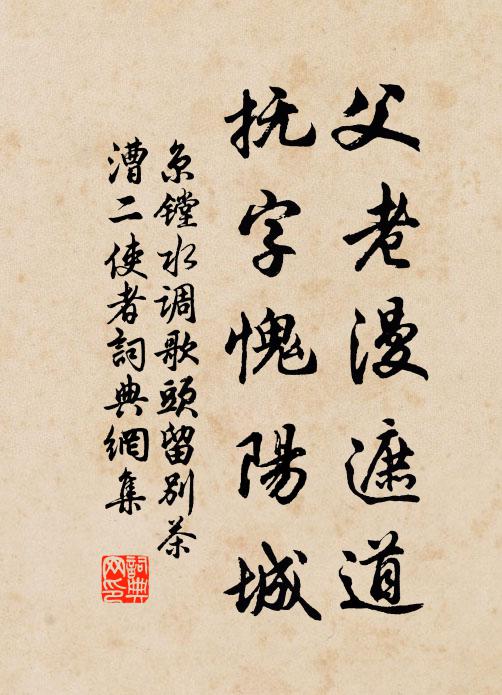 父老漫遮道
抚字愧陽城
京镗水调歌頭留别茶
漕二使者詞典網集
詞典网印